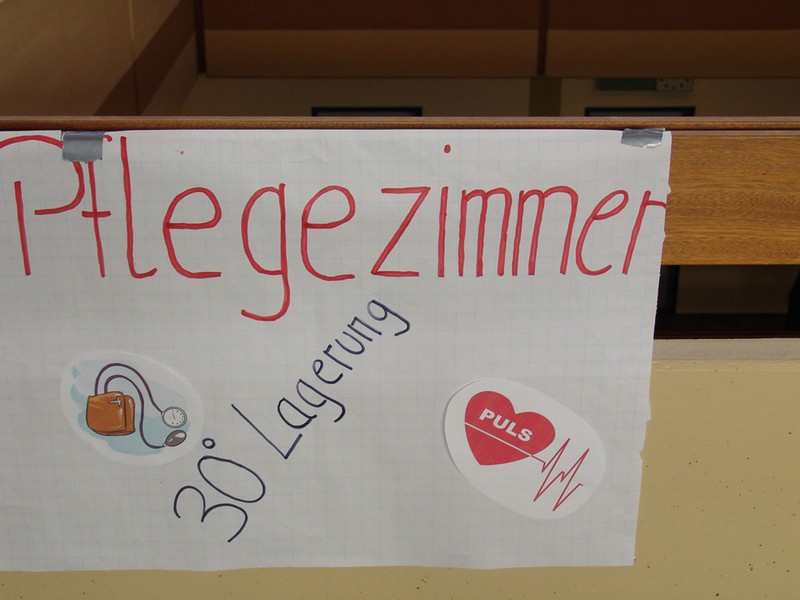 Pflegezimmer
30° Lagerung
PULS